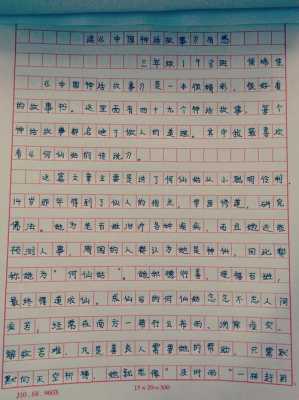 读《中国神话故事》有感
三年级1
《中国神话故事》是一本很精彩,很好看
的故事书。这里面有四十九个神话故事,每个
神话故事都包含了做人的道理。其中我最喜欢
看《何仙姑的传说》。
这篇文章主要是讲了何仙姑从小聪明伶俐,
14岁那年得到了仙人的指点,
佛法。她为老百姓治疗各种疾病,而且她还能
预测人事,周围的人都认为她是神仙,因此都
称她为“何仙姑”。她
最终得道成仙。成仙后的何仙姑念念不忘人间
疾苦,经常在南方一带行云布雨、消除疫灾、
解救苦难。凡是善良人需要她的帮助,只需默
默的天空祈祷,她就想像“及时雨”一样赶到
15×20=300